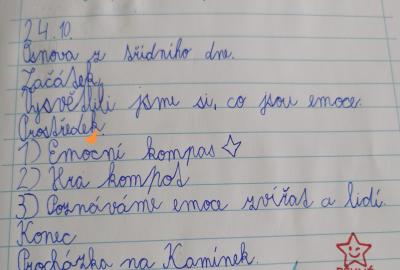 24.10.
Osnova z třídního dne.
Začátek
Vysvětlili jsme si, co jsou emoce.
Prostředek
1) Emoční kompas
2) Hra kompot
3) Poznáváme emoce zvířat a lidí.
Konec
Procházka na Kamínek.